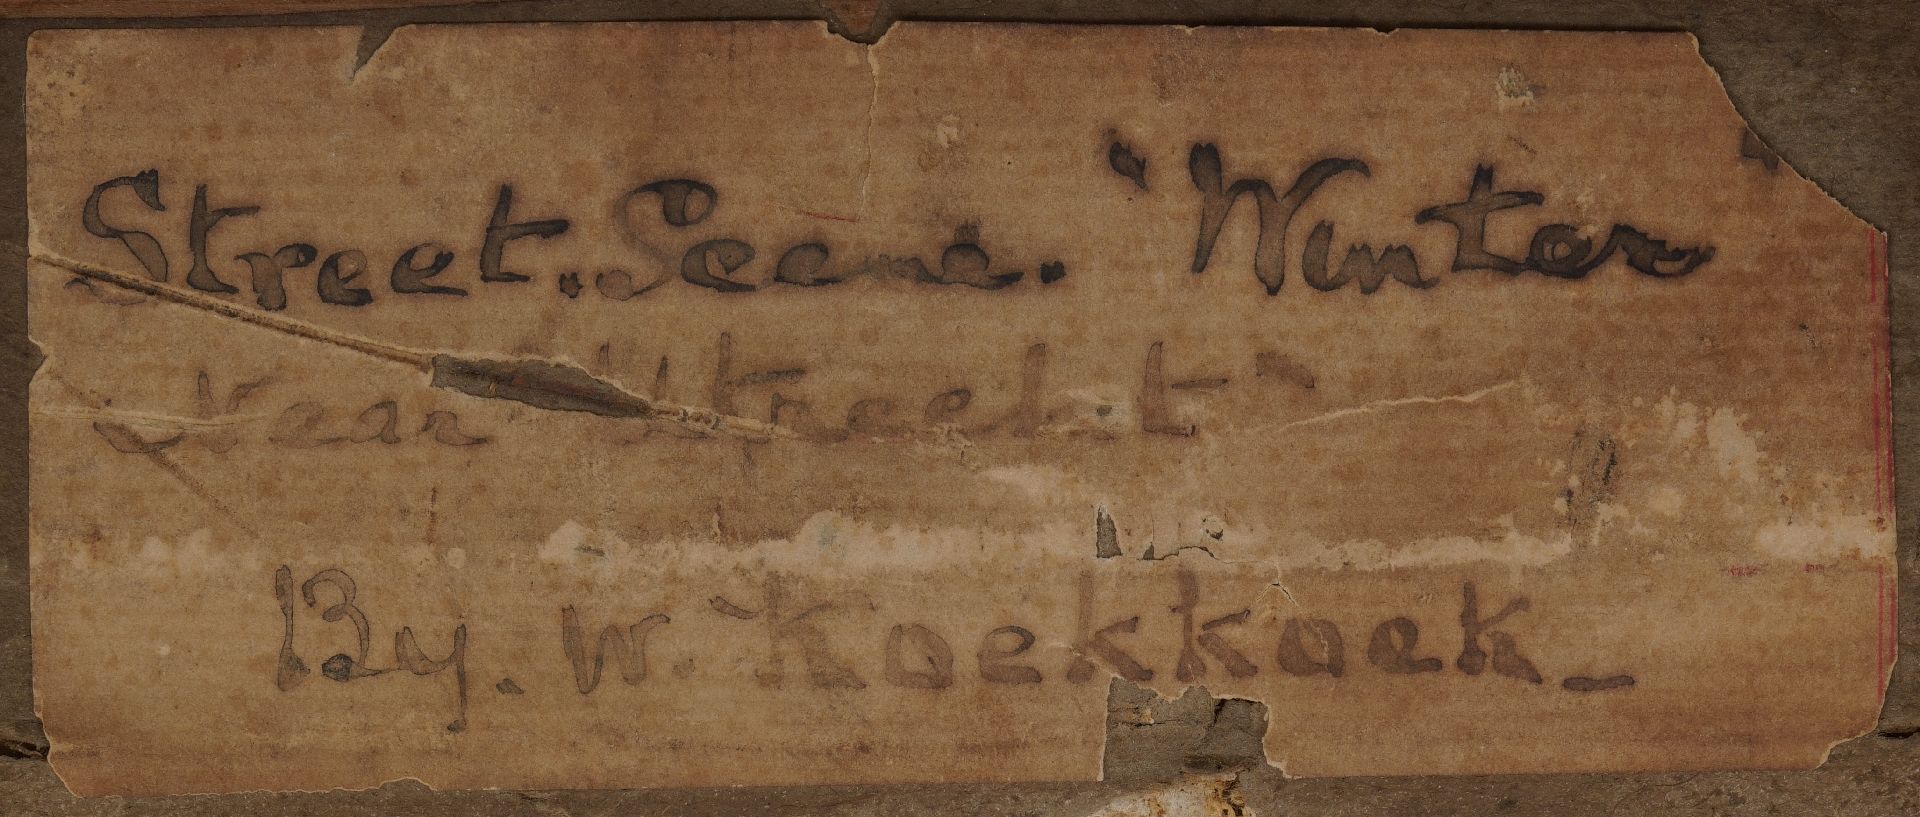 Street. Scene. 'Winter
Near Utrecht"
By. W. Koekkoek_